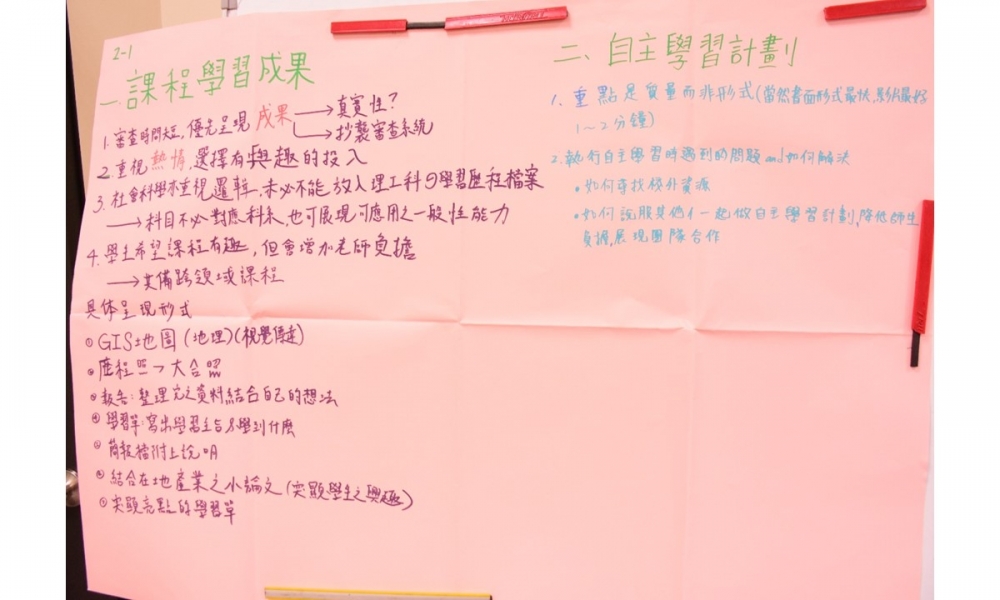 2-1
一.課程學習成果
1.審查時間太短,優先呈現 成果 → 真實性?
↳ 抄襲審查系統
2.重視熱情,選擇有興趣的投入
3.社會科學亦重視邏輯,未必不能放入理工科の學習歷程檔案
→科目不必對應科系,也可展現可應用之一般性能力
4.學生希望課程有趣,但會增加老師負擔
→共備跨領域課程
具体呈現形式
GIS地圖(地理)(視覺傳達)
歷程照→大合照
報告:整理完之資料結合自己的想法
學習單:寫出學習主旨&學到什麼
簡報檔附上說明
結合在地產業之小論文(突顯學生之興趣)
突顯亮點的學習單
二、自主學習計劃
1.重點是質量而非形式(當然書面形式最快,影片最好
1~2分鐘)
2.執行自主學習時遇到的問題and如何解決
•如何尋找校外資源
•如何說服其他人一起做自主學習計劃,降低師生
負擔,展現團隊合作